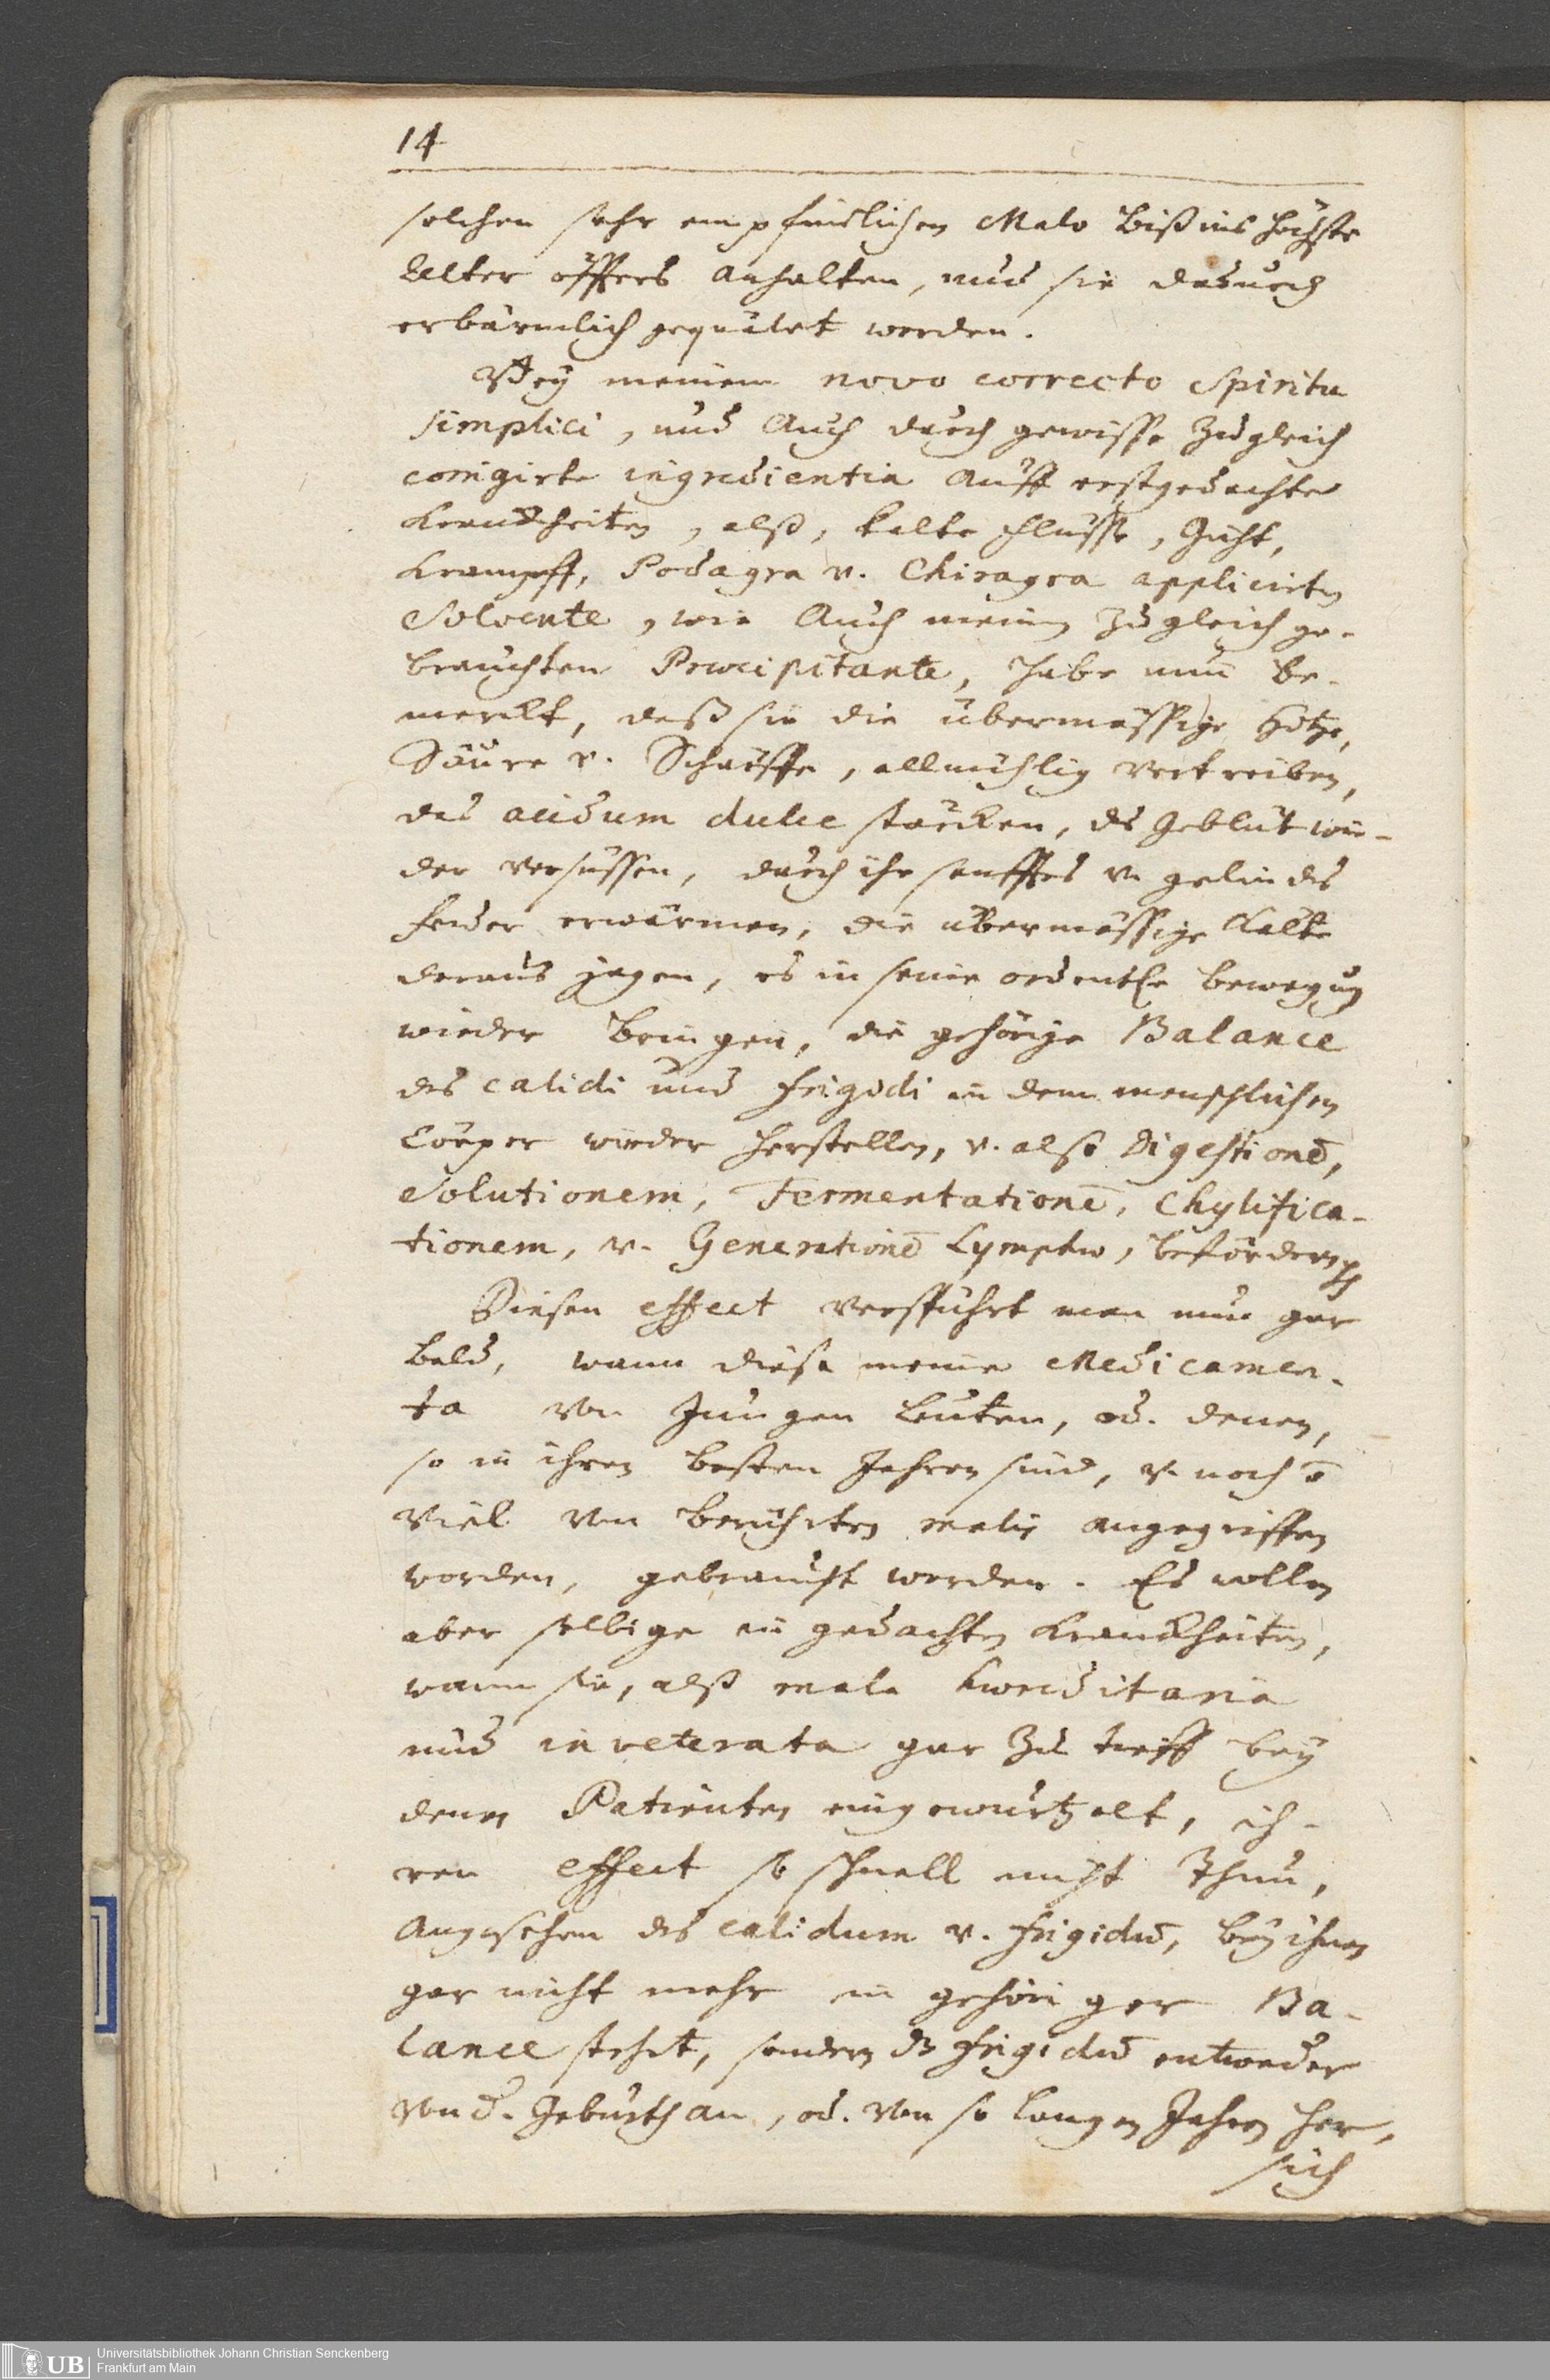 14
solchen sehr empfindlichen Malo biß ins höchste
Alter öffters anhalten, und sie dadurch
erbärmlich gequälet werden.
Bey meinem novo correcto Spiritu
simplici, und auch durch gewisse zugleich
corrigirte ingredientia auff erstgedachte
Kranckheiten, alß, kalte Flüsse, Gicht,
Krampff, Podagra v. Chiragra applicirten
Solvente, wie auch meinem zugleich ge-
brauchten Præcipitante, habe nun be-
merckt, daß sie die übermässige Hitze,
Säure v. Schärffe, allmählig vertreiben,
das acidum dulce stärcken, ds Geblüt wie-
der versüssen, durch ihr sanfftes v. gelindes
Feuer erwärmen, die übermässige Kälte
daraus jagen, es in seine ordentl. bewegung
wieder bringen, die gehörige Balance
des calidi und frigidi in dem menschlichen
Cörper wieder herstellen, v. also Digestionē,
Solutionem, Fermentationē, Chylifica-
tionem, v. Generationē Lymphæ, befördern
Diesen effect verspührt man nun gar
bald, wann diese meine Medicamen-
ta von Jungen Leuten, od. denen,
so in ihren besten Jahren sind, v. noch
viel von berührten malis angegriffen
worden, gebraucht werden. Es wollen
aber selbige in gedachten Kranckheiten,
wann sie, alß mala hæreditaria
und inveterata gar zu tieff bey
denen Patienten eingewurtzelt, ih-
ren effect so schnell nicht thun,
angesehen ds calidum v. frigidū, bey ihnen
gar nicht mehr in gehöriger Ba-
lance stehet, sondern ds frigidū entweder
von d. Geburth an, od. von so langen Jahren her,
sich
Universitätsbibliothek Johann Christian Senckenberg
Frankfurt am Main
UB